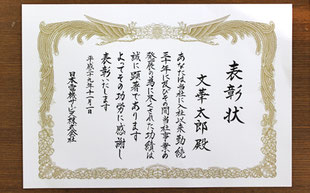 表彰状
文華太郎殿
あなたは当社に入社以来勤続
三十年に及びその間当社事業の
発展の為に尽くされた功績は
誠に顕著であります
よってその功労に感謝し
表彰いたします
平成二十九年十一月一日
日本電熱サービス株式会社